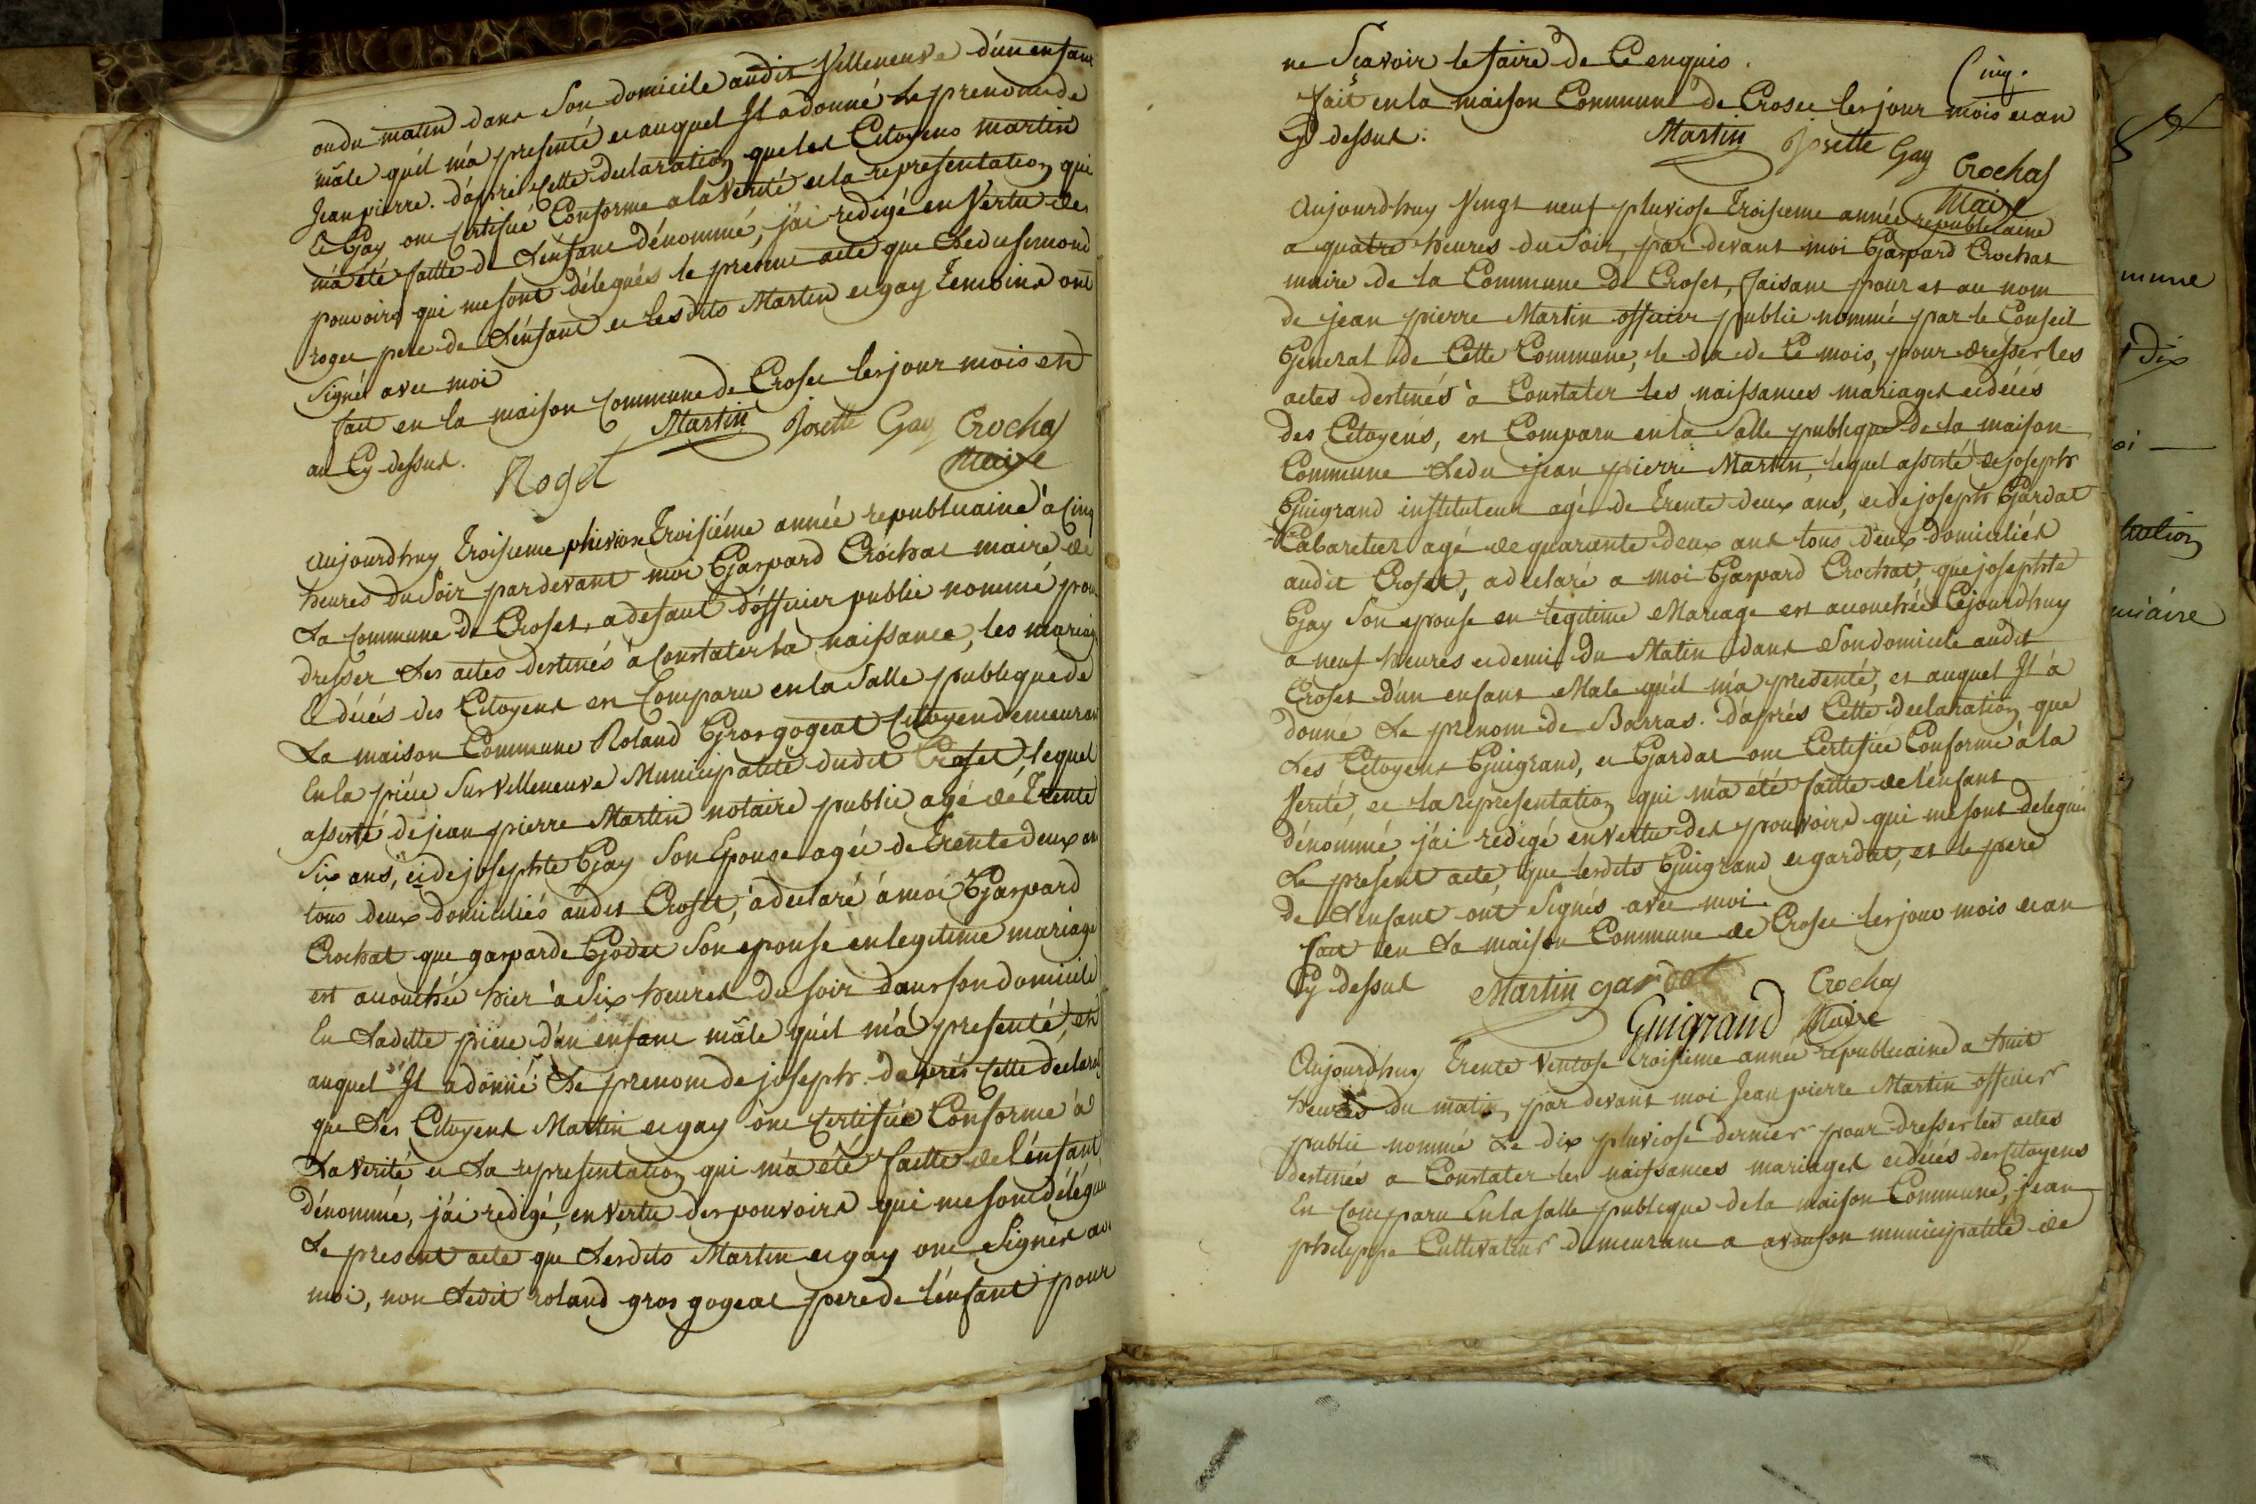 ou du matin dans Son domicile audit Villeneuve d'un enfant
mâle qu'il m'a presenté et auquel Il a donné le prenom de
Jean pierre. d'aprés Cette declaration que les Citoyens martin
et Gay ont Certifié Conforme a la Verité et la representation qui
m'a été faitte de L'enfant dénommé, j'ai redigé en Vertu des
pouvoirs qui me sont délegués le present acte que Ledit simond
roget pere de L'enfant et lesdits Martin et gay Temoins ont
Signé avec moi
fait en la maison Commune de Croset les jour mois et
an Cy dessus.
Martin Josette Gay Crochat
Roget
Maire
Aujourdhuy Troisieme pluviose Troisiéme année republicaine à Cinq
heures du Soir par devant moi Gaspard Crochat maire de
La Commune de Croset, a defaut d'officier public nommé pour
dresser Les actes destinés à Constater la naissance, les mariages
et décés des Citoyens est Comparu en la Salle publique de
La maison Commune Roland Grosgogeat Citoyen demeurant
En la piece Sur Villeneuve Municipalité dudit Croset, lequel
assisté de jean pierre Martin notaire public agé de Trente
Six ans, et de josephte Gay Son Epouse agée de Trente deux ans
tous deux domiciliés audit Croset, a declaré à moi Gaspard
Crochat que gasparde Godet Son epouse en legitime mariage
est accouchée hier à Six heures du soir dans son domicile
En Laditte piece d'un enfant mâle qu'il m'a presenté, et
auquel Il a donné Le prenom de joseph. d'aprés Cette declaration
que Les Citoyens Martin et gay ont Certifiée Conforme à
La Verité et La representation qui m'a été faitte de l'enfant
dénommé, j'ai redigé, en Vertu des pouvoirs qui me sont délégués
Le present acte que Lesdits Martin et gay ont Signés avec
moi, non Ledit roland gros gogeat pere de l'enfant pour
ne Sçavoir le faire de Ce enquis.
Cinq.
fait en la maison Commune de Croset les jour mois et an
Cy dessus.
Martin Josette Gay Crochat
Maire
Aujourdhuy Vingt neuf pluviose Troisieme année republicaine
a quatre heures du Soir, par devant moi Gaspard Crochat
maire de la Commune de Croset, faisant pour et au nom
de jean pierre Martin officier public nommé par le Conseil
General de Cette Commune, le dix de Ce mois, pour dresser les
actes destinés à Constater les naissances mariages et décés
des Citoyens, est Comparu en la Salle publique de la maison
Commune Ledit jean pierre Martin, lequel assisté de joseph
Guigrand instituteur agé de Trente deux ans, et de joseph Gardat
Cabaretier agé de quarante deux ans tous deux domiciliés
audit Croset, a declaré a moi Gaspard Crochat, que josephte
Gay Son epouse en legitime Mariage est accouchée Cejourdhuy
a neuf heures et demi du Matin dans Son domicile audit
Croset d'un enfant Male qu'il m'a presenté, et auquel Il a
donné Le prenom de Barras. d'aprés Cette declaration que
Les Citoyens Guigrand, et Gardat ont Certifiée Conforme à la
Verité et la representation qui m'a été faitte de l'enfant
dénommé, j'ai redigé en Vertu des pouvoirs qui me sont delegués
Le present acte que lesdits Guigrand et gardat, et le pere
de L'enfant ont Signés avec moi.
fait en La maison Commune de Croset les jour mois et an
Cy dessus Martin gardat Crochat
Guigrand Maire
Aujourdhuy Trente Ventose Troisieme année republicaine a huit
heures du matin, par devant moi Jean pierre Martin officier
public nommé Le dix pluviose dernier pour dresser les actes
destinés a Constater les naissances mariages et décés des Citoyens
Est Comparu En la salle publique de la maison Commune, jean
philippe Cultivateur demeurant a avouson municipalité de